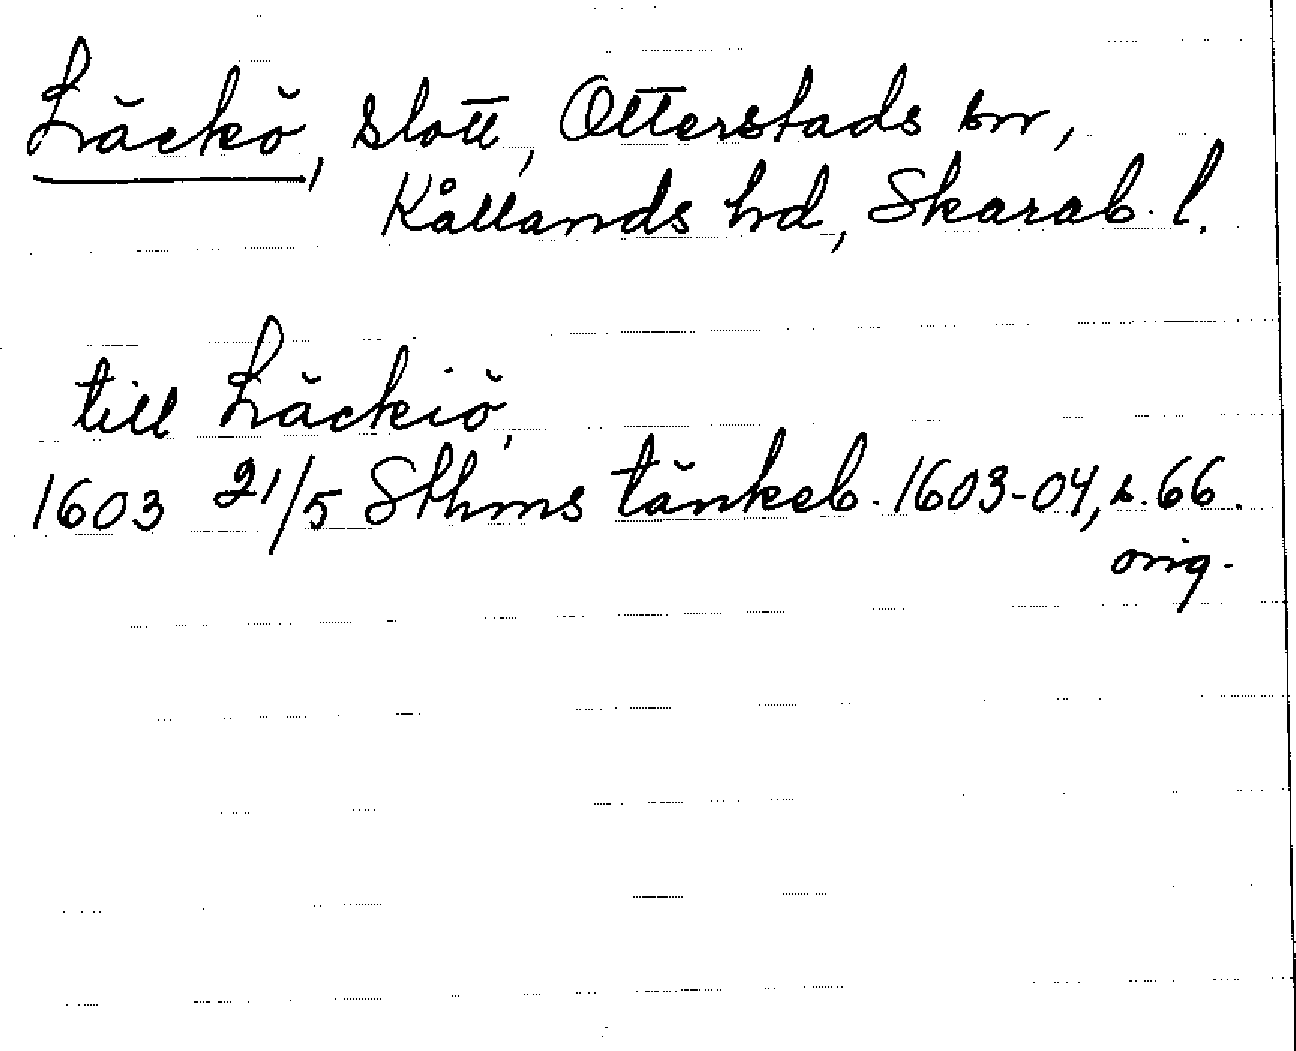 Läckö, slott, Otterstads sn,
Kållands hd, Skarab. l.
till Läckiö,
1603 21/5 Sthms tänkeb. 1603-04, s. 66.
orig.